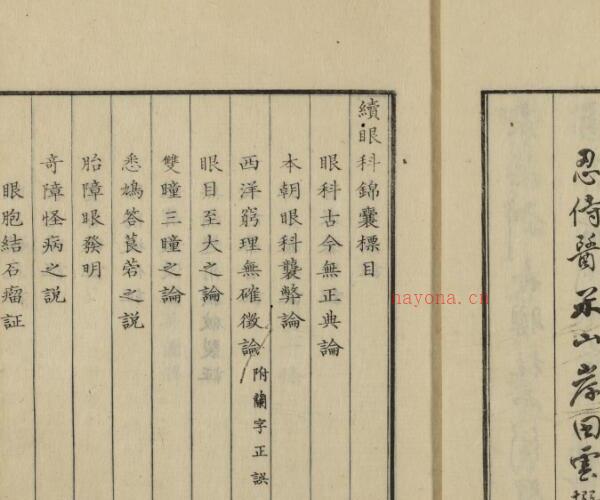 忍侍醫
山岸田雲
續眼科錦囊標目
眼科古今無正典論
本朝眼科襲弊論
西洋窮理無確徵論 附蘭字正誤
眼目至大之論
雙瞳三瞳之論
悉鳩答莨菪之說
胎障眼發明
奇障怪病之說
眼胞結石瘤証
nayona.cn